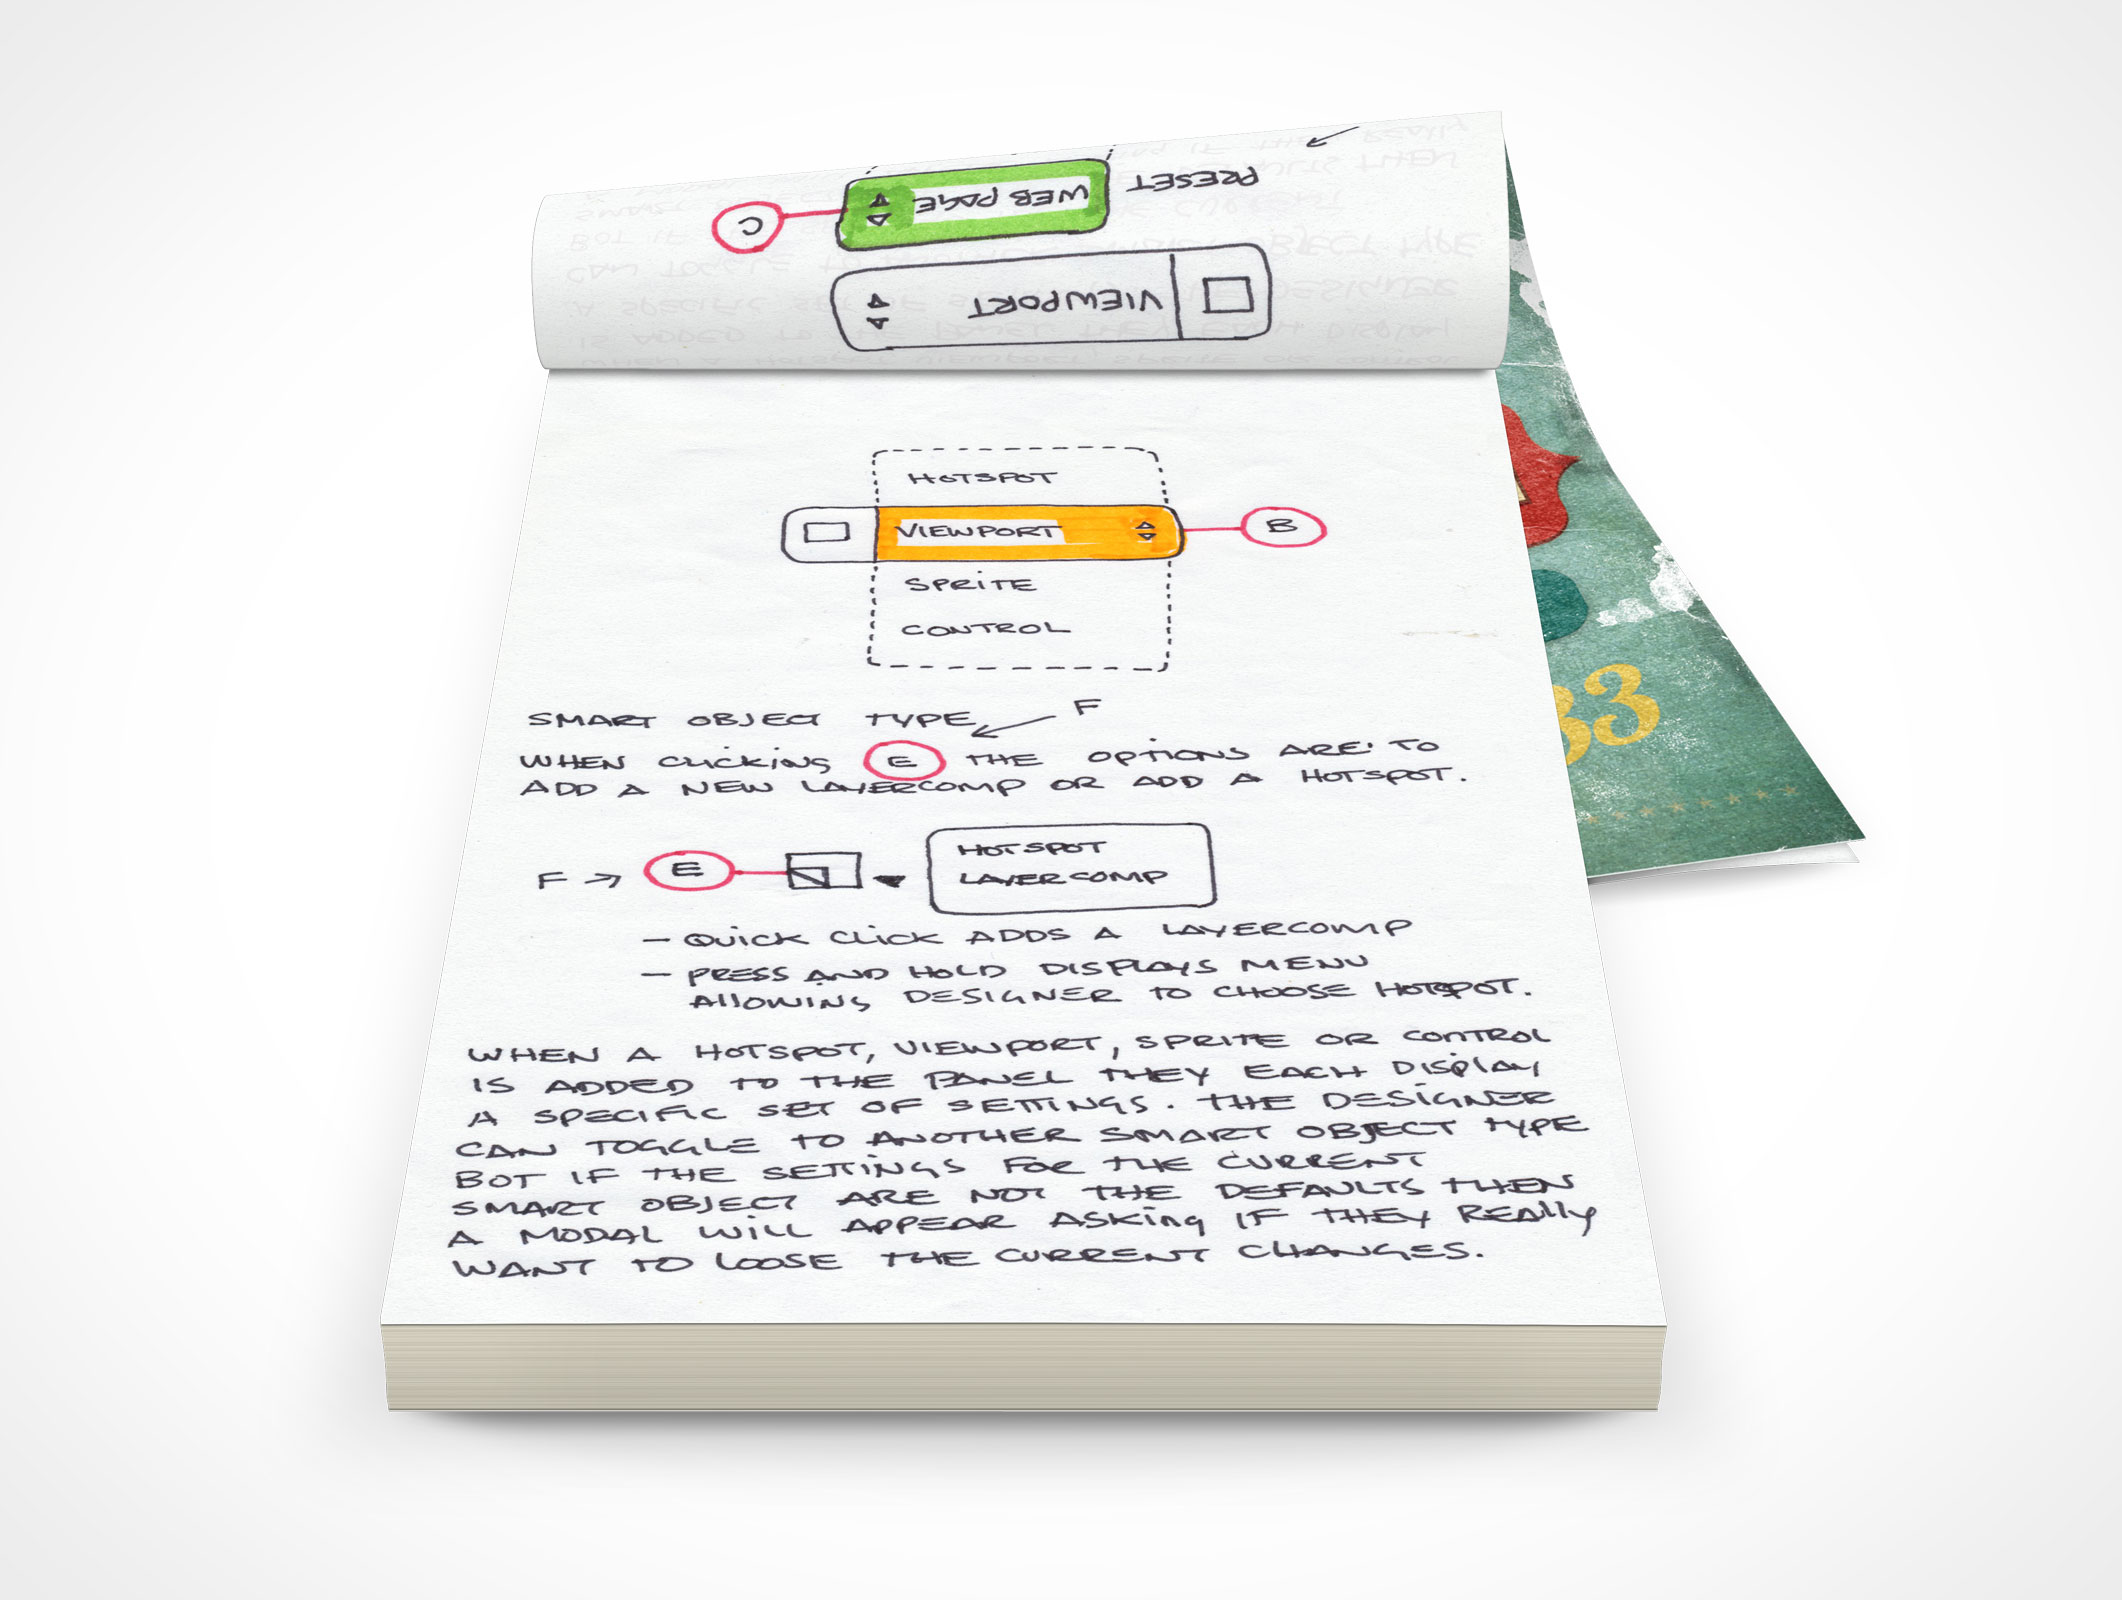 PRESET
WEB PAGE
C
VIEWPORT
HOTSPOT
VIEWPORT
B
SPRITE
CONTROL
SMART OBJECT TYPE
F
WHEN CLICKING E THE OPTIONS ARE: TO
ADD A NEW LAYERCOMP OR ADD A HOTSPOT.
F → E
HOTSPOT
LAYERCOMP
— QUICK CLICK ADDS A LAYERCOMP
— PRESS AND HOLD DISPLAYS MENU
ALLOWING DESIGNER TO CHOOSE HOTSPOT.
WHEN A HOTSPOT, VIEWPORT, SPRITE OR CONTROL
IS ADDED TO THE PANEL THEY EACH DISPLAY
A SPECIFIC SET OF SETTINGS. THE DESIGNER
CAN TOGGLE TO ANOTHER SMART OBJECT TYPE
BOT IF THE SETTINGS FOR THE CURRENT
SMART OBJECT ARE NOT THE DEFAULTS THEN
A MODAL WILL APPEAR ASKING IF THEY REALLY
WANT TO LOOSE THE CURRENT CHANGES.
33